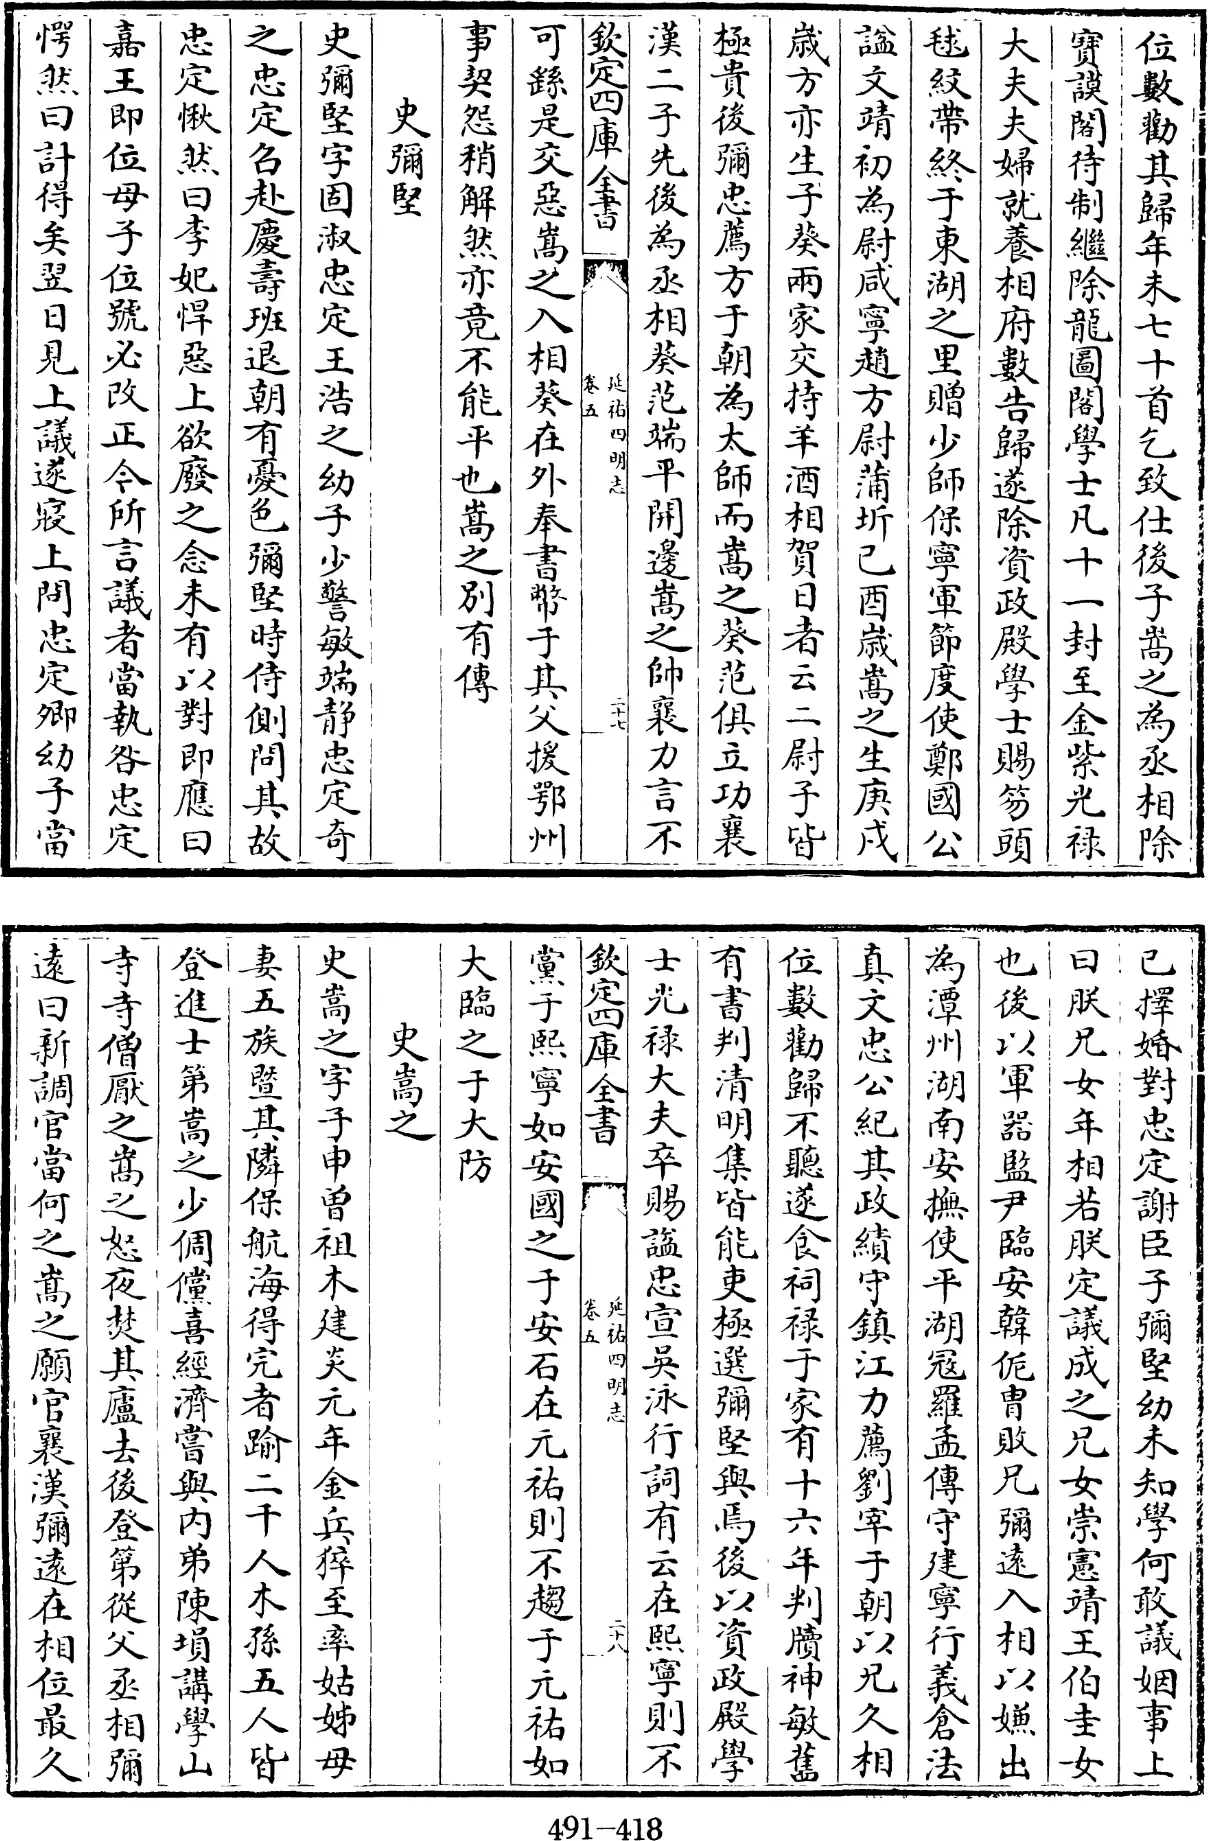 位數勸其歸年未七十首乞致仕後子嵩之為丞相除
寶謨閣待制繼除龍圖閣學士凡十一封至金紫光禄
大夫夫婦就養相府數告歸遂除資政殿學士賜笏頭
毬紋帶終于東湖之里贈少師保寧軍節度使鄭國公
諡文靖初為尉咸寧趙方尉蒲圻已酉歳嵩之生庚戍
歳方亦生子葵兩家交持羊酒相賀日者云二尉子皆
極貴後彌忠薦方于朝為太師而嵩之葵范俱立功襄
漢二子先後為丞相葵范端平開邊嵩之帥襄力言不
欽定四庫全書
延祐四明志
卷五
二十七
可繇是交惡嵩之入相葵在外奉書幣于其父援鄂州
事契怨稍解然亦竟不能平也嵩之别有傳
史彌堅
史彌堅字固淑忠定王浩之幼子少警敏端静忠定奇
之忠定召赴慶壽班退朝有憂色彌堅時侍側問其故
忠定愀然曰李妃悍惡上欲廢之念未有以對即應曰
嘉王即位母子位號必改正今所言議者當執咎忠定
愕然曰計得矣翌日見上議遂寢上問忠定卿幼子當
已擇婚對忠定謝臣子彌堅幼未知學何敢議姻事上
曰朕兄女年相若朕定議成之兄女崇憲靖王伯圭女
也後以軍器監尹臨安韓侂胄敗兄彌遠入相以嫌出
為潭州湖南安撫使平湖冦羅孟傳守建寧行義倉法
真文忠公紀其政績守鎮江力薦劉宰于朝以兄久相
位數勸歸不聽遂食祠禄于家有十六年判牘神敏舊
有書判清明集皆能吏極選彌堅與焉後以資政殿學
士光禄大夫卒賜諡忠宣吳泳行詞有云在熙寧則不
欽定四庫全書
延祐四明志
卷五
二十八
黨于熙寧如安國之于安石在元祐則不趨于元祐如
大臨之于大防
史嵩之
史嵩之字子申曽祖木建炎元年金兵猝至率姑姊母
妻五族暨其隣保航海得完者踰二千人木孫五人皆
登進士第嵩之少倜儻喜經濟嘗與内弟陳塤講學山
寺寺僧厭之嵩之怒夜焚其廬去後登第從父丞相彌
遠曰新調官當何之嵩之願官襄漢彌遠在相位最久
491-418